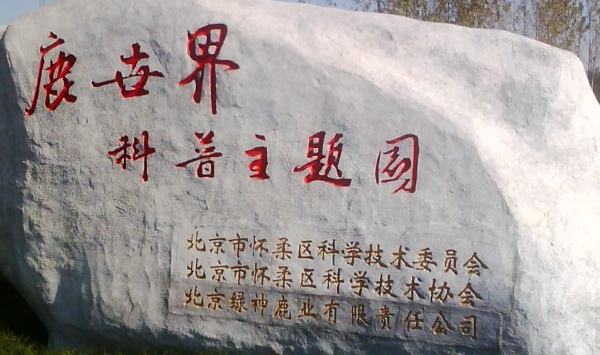 鹿世界
科普主题园
北京市怀柔区科学技术委员会
北京市怀柔区科学技术协会
北京绿神鹿业有限责任公司